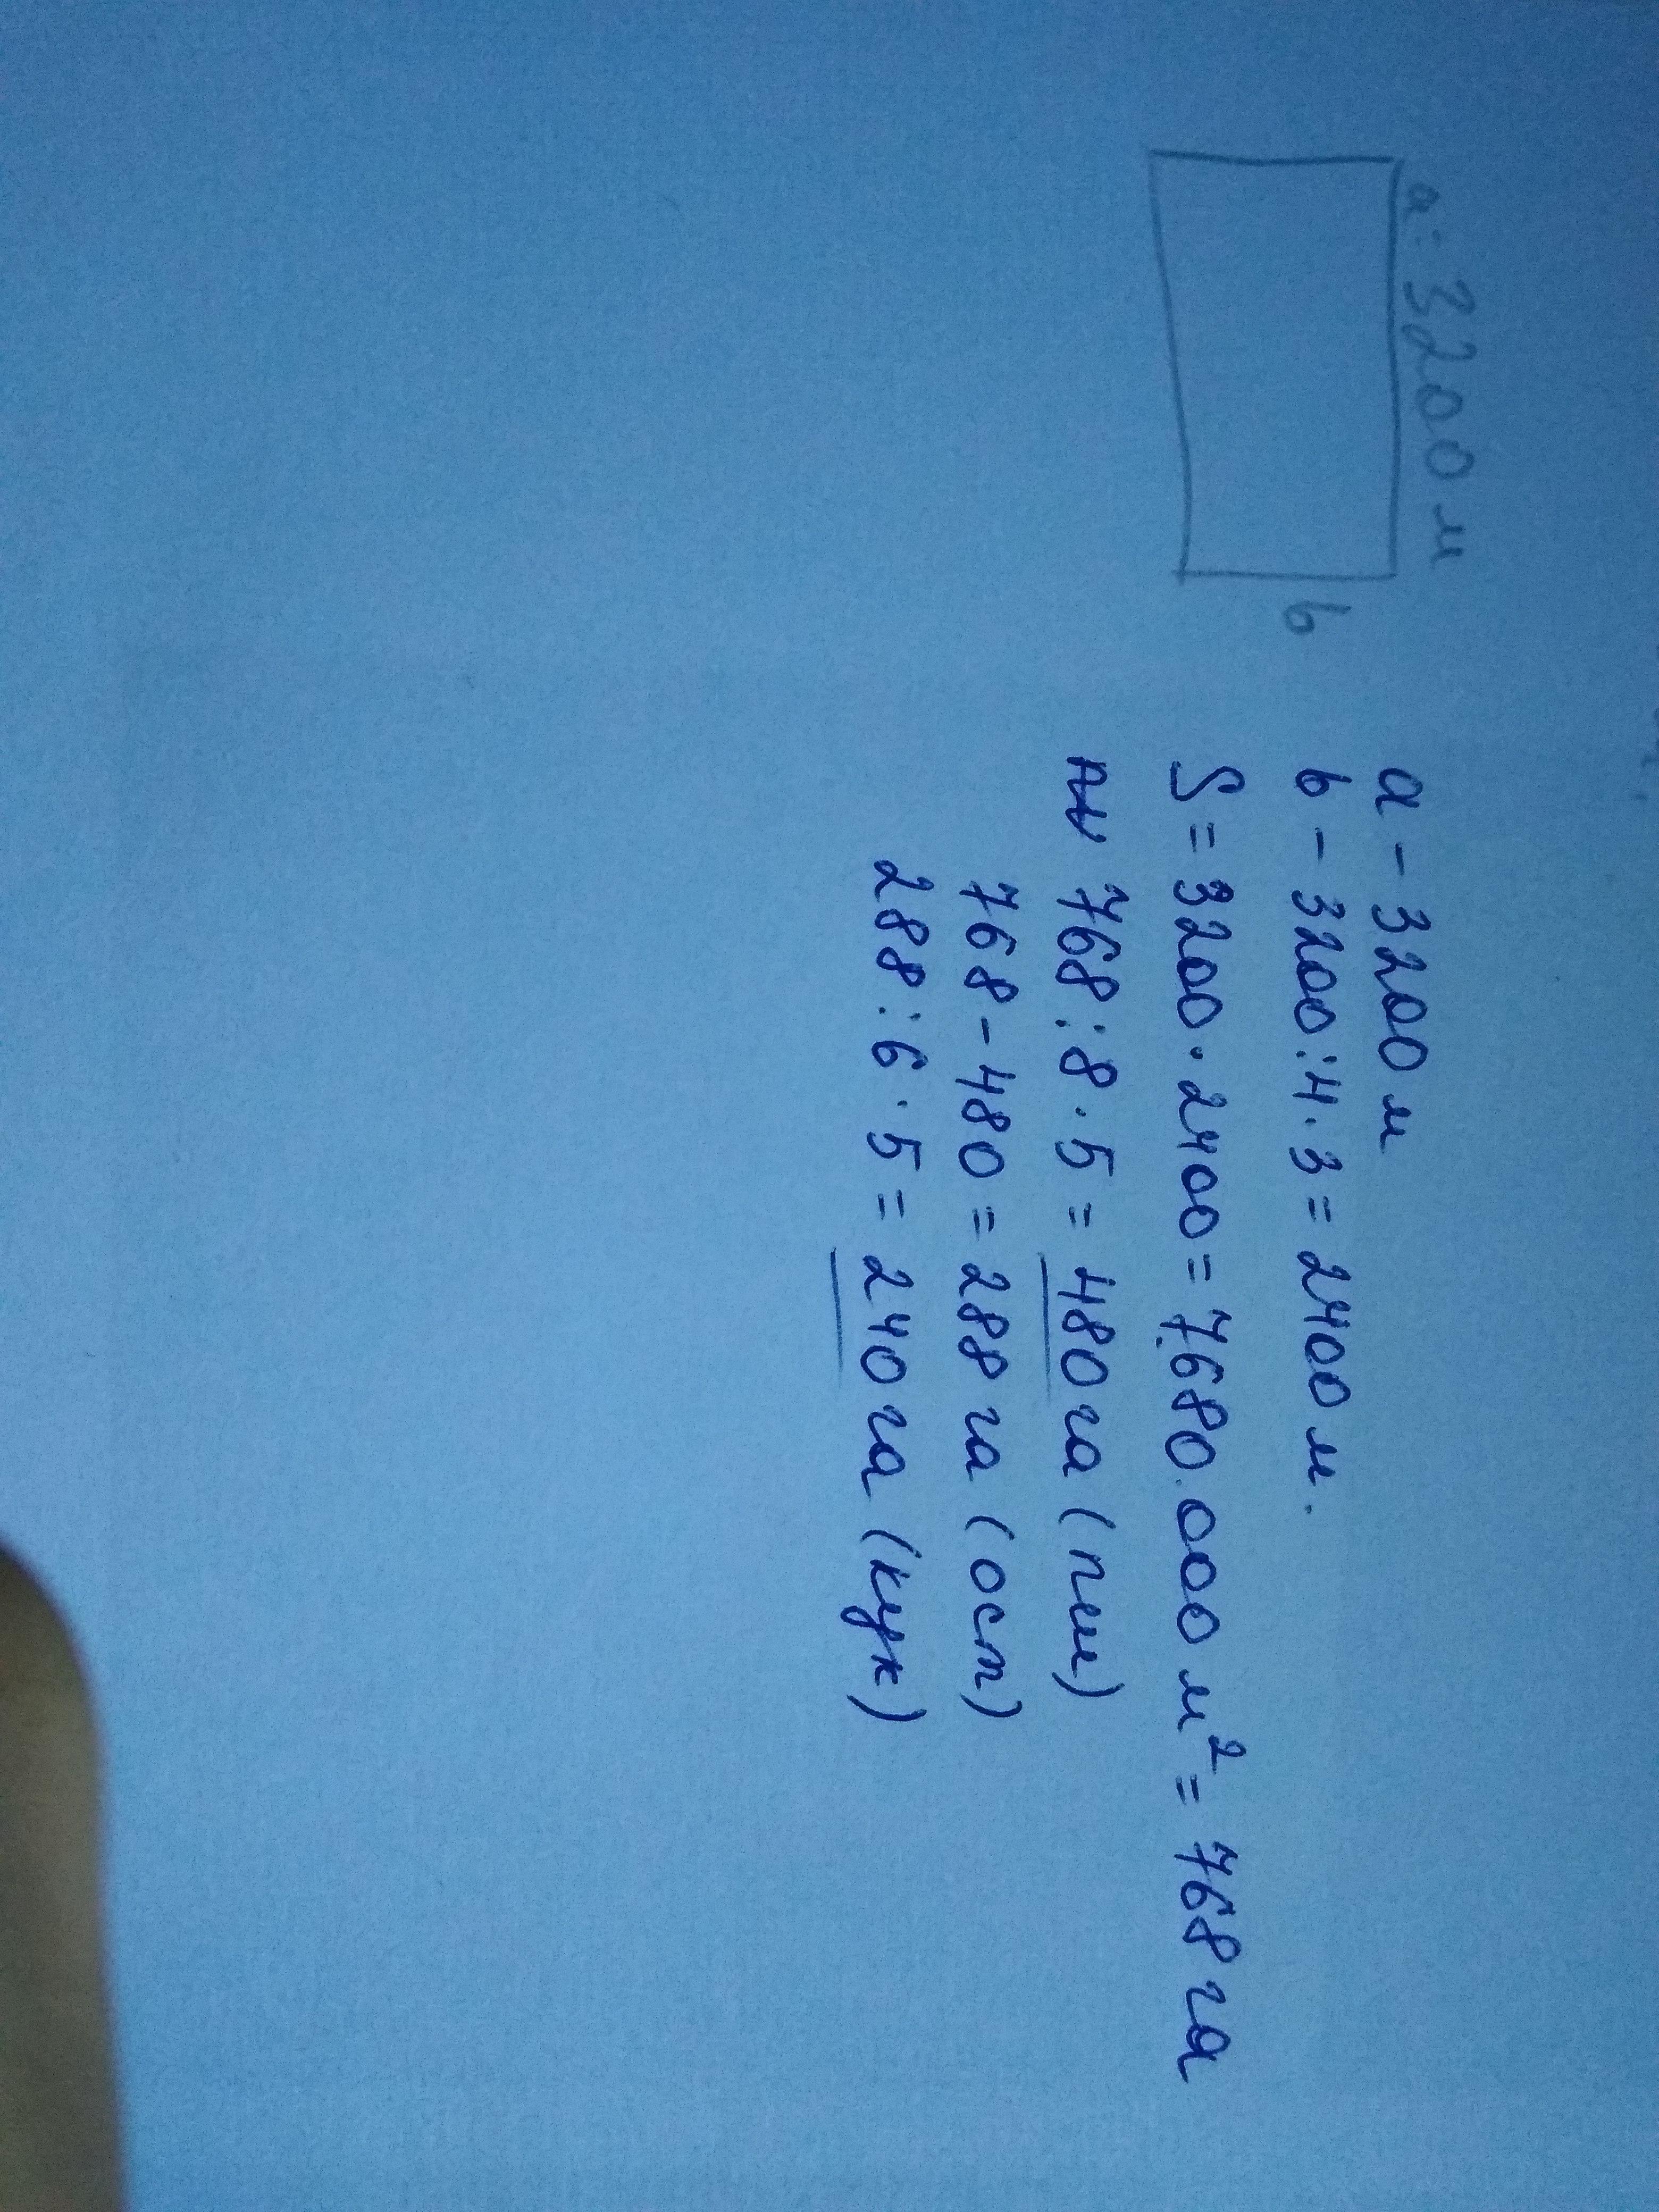 a = 3200 м
b
a - 3200 м
b - 3200 : 4 · 3 = 2400 м.
S = 3200 · 2400 = 7.680.000 м² = 768 га
768 : 8 · 5 = 480 га (пш)
768 - 480 = 288 га (ост)
288 : 6 · 5 = 240 га (кук)